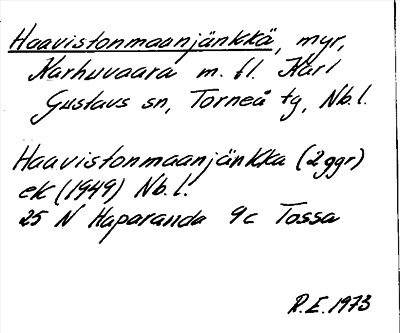 Haavistonmaanjänkkä, myr,
Karhuvaara m. fl. Karl
Gustavs sn, Torneå tg, Nb.l.
Haavistonmaanjänkka (2ggr)
ek (1949) Nb.l.
25 N Haparanda 9c Tossa
R.E. 1973